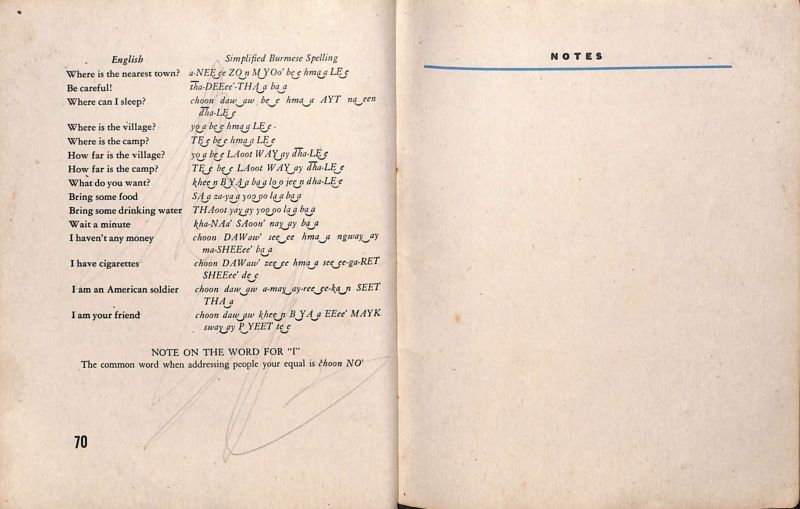 English Simplified Burmese Spelling
Where is the nearest town? a-NEE͜ee ZO͜n M͜YOo' be͜e hma͜a LE͜e
Be careful! t͞ha-DEEee'-THA͜a ba͜a
Where can I sleep? choon daw͜aw be͜e hma͜a AYT na͜een
d͞ha-LE͜e
Where is the village? yo͜a be͜e hma͜a LE͜e
Where is the camp? TE͜e be͜e hma͜a LE͜e
How far is the village? yo͜a be͜e LAoot WAY͜ay d͞ha-LE͜e
How far is the camp? TE͜e be͜e LAoot WAY͜ay d͞ha-LE͜e
What do you want? khee͜n B͜YA͜a ba͜a lo͜o jee͜n dha-LE͜e
Bring some food SA͜a za-ya͜a yoo͜oo la͜a ba͜a
Bring some drinking water THAoot yay͜ay yoo͜oo la͜a ba͜a
Wait a minute kha-NAa' SAoon' nay͜ay ba͜a
I haven't any money choon DAWaw' see͜ee hma͜a ngway͜ay
ma-SHEEee' ba͜a
I have cigarettes choon DAWaw' zee͜ee hma͜a see͜ee-ga-RET
SHEEee' de͜e
I am an American soldier choon daw͜aw a-may͜ay-ree͜ee-ka͜n SEET
THA͜a
I am your friend choon daw͜aw khee͜n B͜YA͜a EEee' MAYK
sway͜ay P͜YEET te͜e
NOTE ON THE WORD FOR "I"
The common word when addressing people your equal is choon NO'
70
NOTES